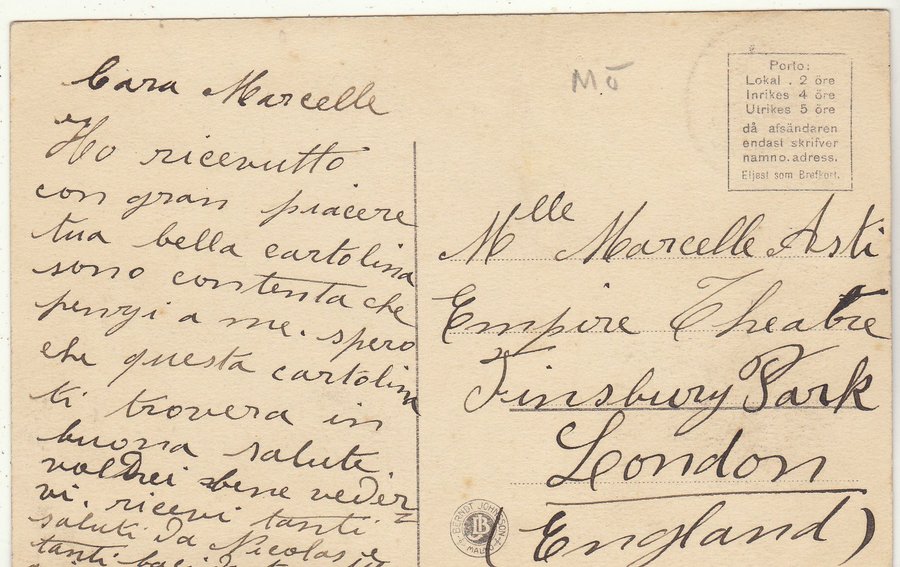 Cara Marcelle
Ho ricevutto
con gran piacere
tua bella cartolina
sono contenta che
penzi a me. spero
che questa cartolina
ti trovera in
buona salute.
voldrei bene veder
vi. ricevi tanti
saluti da Nicolas e
tanti baci
Mō
Porto:
Lokal . 2 öre
Inrikes 4 öre
Utrikes 5 öre
då afsändaren
endast skrifver
namn o. adress.
Eljest som Brefkort.
Mlle Marcelle Asti
Empire Theatre
Finsbury Park
London
(England)
BERNDT JOHNSSON
JB
MALMÖ